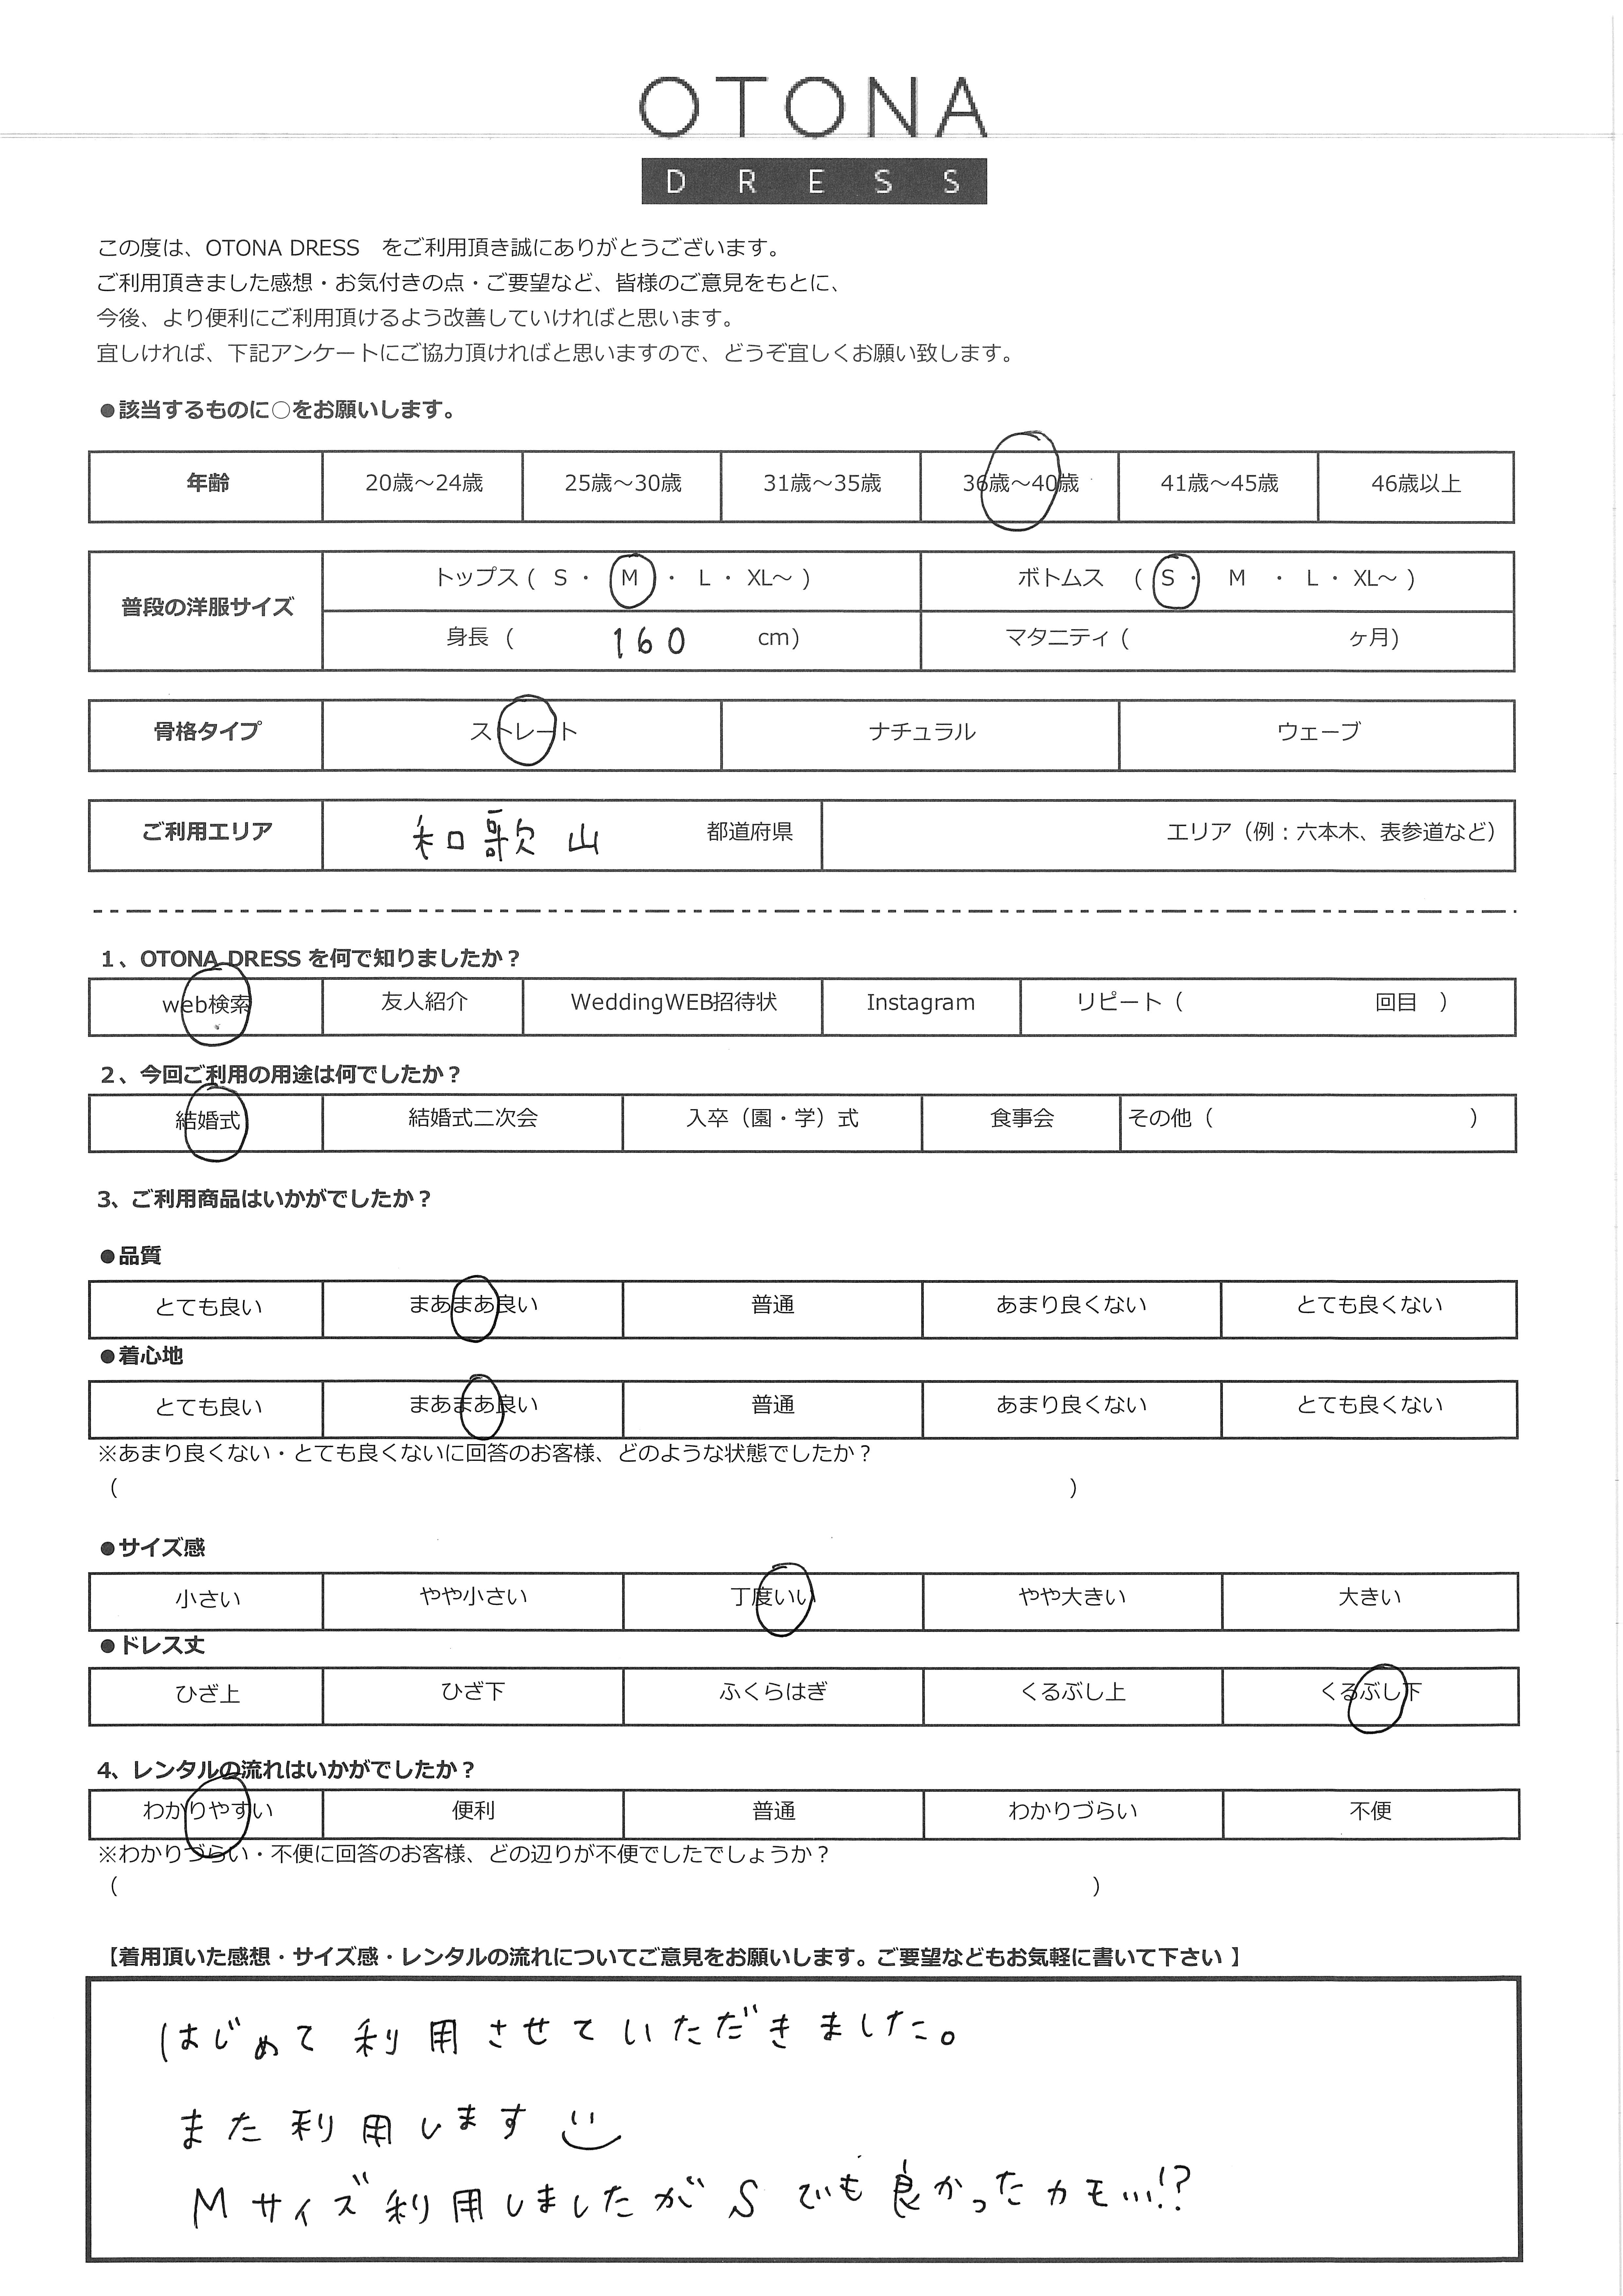 OTONA
DRESS
この度は、OTONA DRESS　をご利用頂き誠にありがとうございます。
ご利用頂きました感想・お気付きの点・ご要望など、皆様のご意見をもとに、
今後、より便利にご利用頂けるよう改善していければと思います。
宜しければ、下記アンケートにご協力頂ければと思いますので、どうぞ宜しくお願い致します。
●該当するものに○をお願いします。
年齢 20歳～24歳 25歳～30歳 31歳～35歳 36歳～40歳 41歳～45歳 46歳以上
普段の洋服サイズ トップス ( S ・ M ・ L ・ XL～ ) ボトムス ( S ・ M ・ L ・ XL～ )
身長 ( 160 cm) マタニティ ( ヶ月)
骨格タイプ ストレート ナチュラル ウェーブ
ご利用エリア 和歌山 都道府県 エリア（例：六本木、表参道など）
1、OTONA DRESS を何で知りましたか？
web検索 友人紹介 WeddingWEB招待状 Instagram リピート（ 回目 ）
2、今回ご利用の用途は何でしたか？
結婚式 結婚式二次会 入卒（園・学）式 食事会 その他（ ）
3、ご利用商品はいかがでしたか？
●品質
とても良い まあまあ良い 普通 あまり良くない とても良くない
●着心地
とても良い まあまあ良い 普通 あまり良くない とても良くない
※あまり良くない・とても良くないに回答のお客様、どのような状態でしたか？
（ ）
●サイズ感
小さい やや小さい 丁度いい やや大きい 大きい
●ドレス丈
ひざ上 ひざ下 ふくらはぎ くるぶし上 くるぶし下
4、レンタルの流れはいかがでしたか？
わかりやすい 便利 普通 わかりづらい 不便
※わかりづらい・不便に回答のお客様、どの辺りが不便でしたでしょうか？
（ ）
【着用頂いた感想・サイズ感・レンタルの流れについてご意見をお願いします。ご要望などもお気軽に書いて下さい 】
はじめて利用させていただきました。
また利用します
Mサイズ利用しましたが S でも良かったカモ…!?